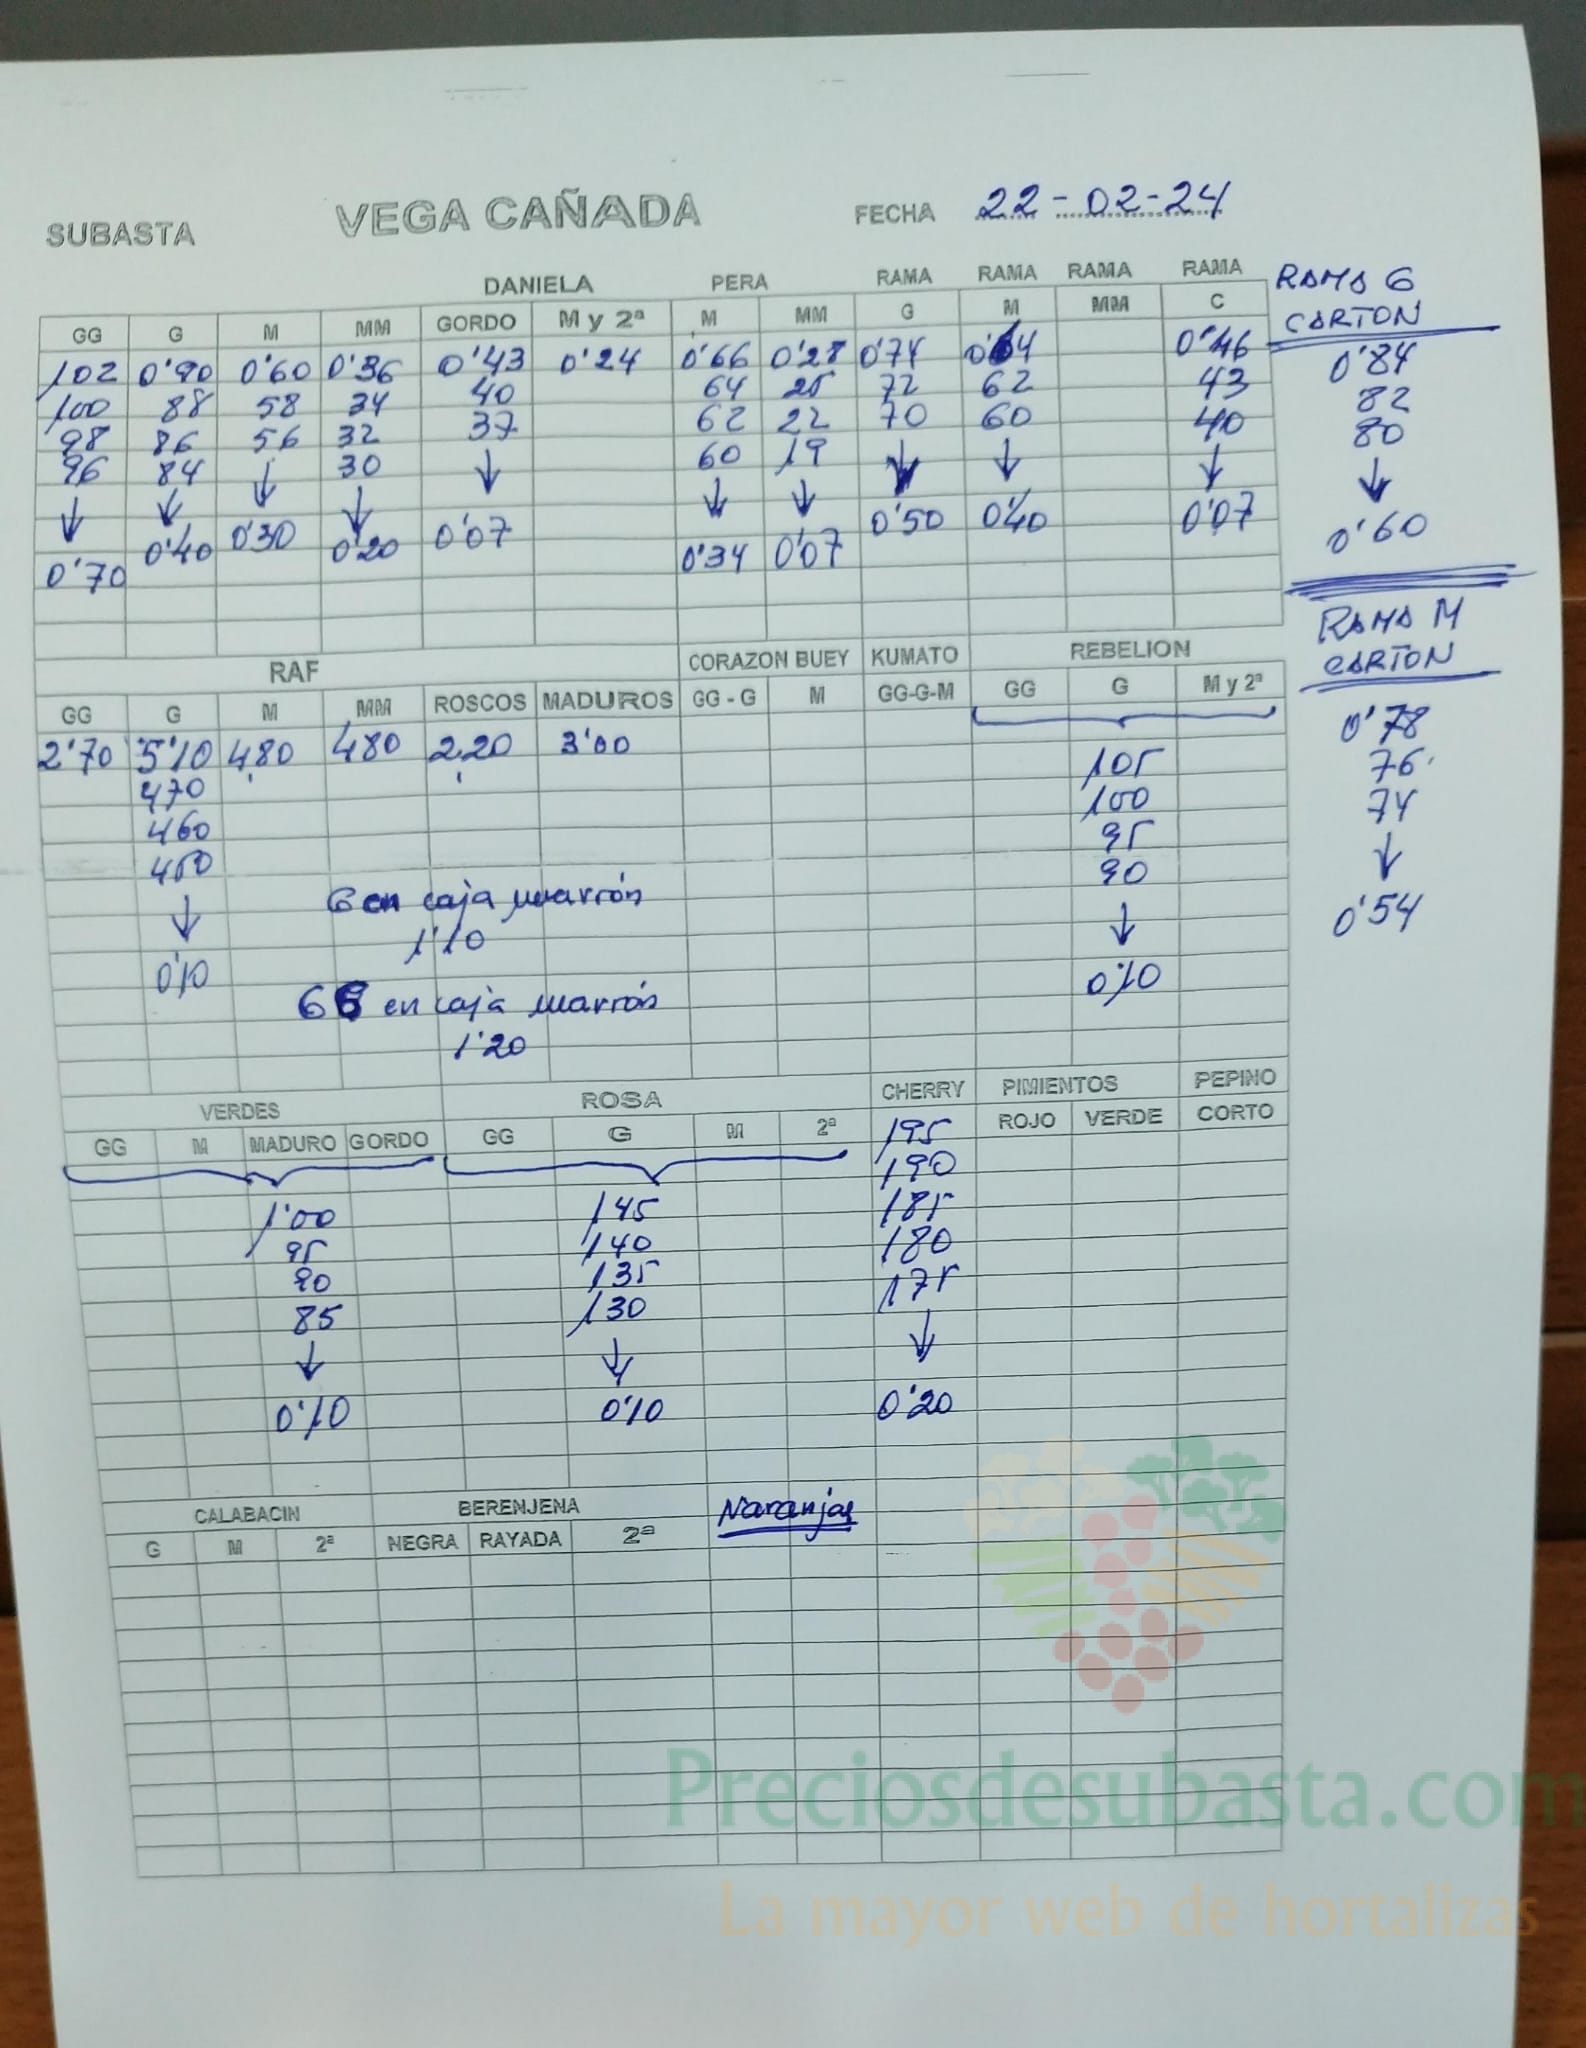 SUBASTA VEGA CAÑADA FECHA 22-02-24
DANIELA PERA RAMA RAMA RAMA RAMA RAMA G
GG G M MM GORDO M y 2ª M MM G M MM C CARTON
102 0'90 0'60 0'36 0'43 0'24 0'66 0'28 0'74 0'64 0'46 0'84
100 88 58 34 40 64 25 72 62 43 82
98 86 56 32 37 62 22 70 60 40 80
96 84 ↓ 30 ↓ 60 19 ↓ ↓ ↓ ↓
↓ ↓ 0'30 ↓ 0'07 ↓ ↓ 0'50 0'40 0'07 0'60
0'70 0'40 0'20 0'34 0'07
RAMA M
CARTON
0'78
76
74
↓
0'54
RAF CORAZON BUEY KUMATO REBELION
GG G M MM ROSCOS MADUROS GG - G M GG-G-M GG G M y 2ª
2'70 5'10 4,80 4,80 2,20 3'00 105
470 100
460 95
450 90
↓ ↓
0'10 0'10
G en caja marrón
1'10
GG en caja marrón
1'20
VERDES ROSA CHERRY PIMIENTOS PEPINO
GG M MADURO GORDO GG G M 2ª ROJO VERDE CORTO
195
190
1'00 145 185
95 140 180
90 135 175
85 130 ↓
↓ ↓ 0'20
0'10 0'10
CALABACIN BERENJENA Naranjas
G M 2ª NEGRA RAYADA 2ª
Preciosdesubasta.com
La mayor web de hortalizas